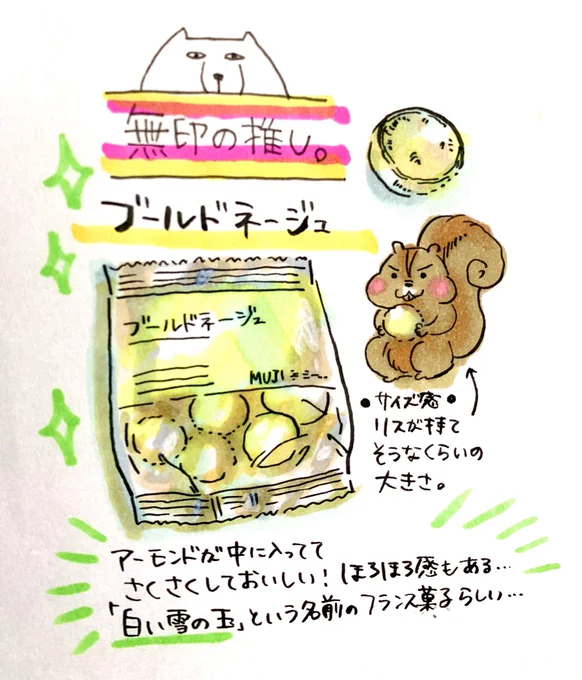 無印の推し。
ブールドネージュ
ブールドネージュ
MUJI
•サイズ感•
リスが持て
そうなくらいの
大きさ。
アーモンドが中に入ってて
さくさくしておいしい！ほろほろ感もある…
「白い雪の玉」という名前のフランス菓子らしい…